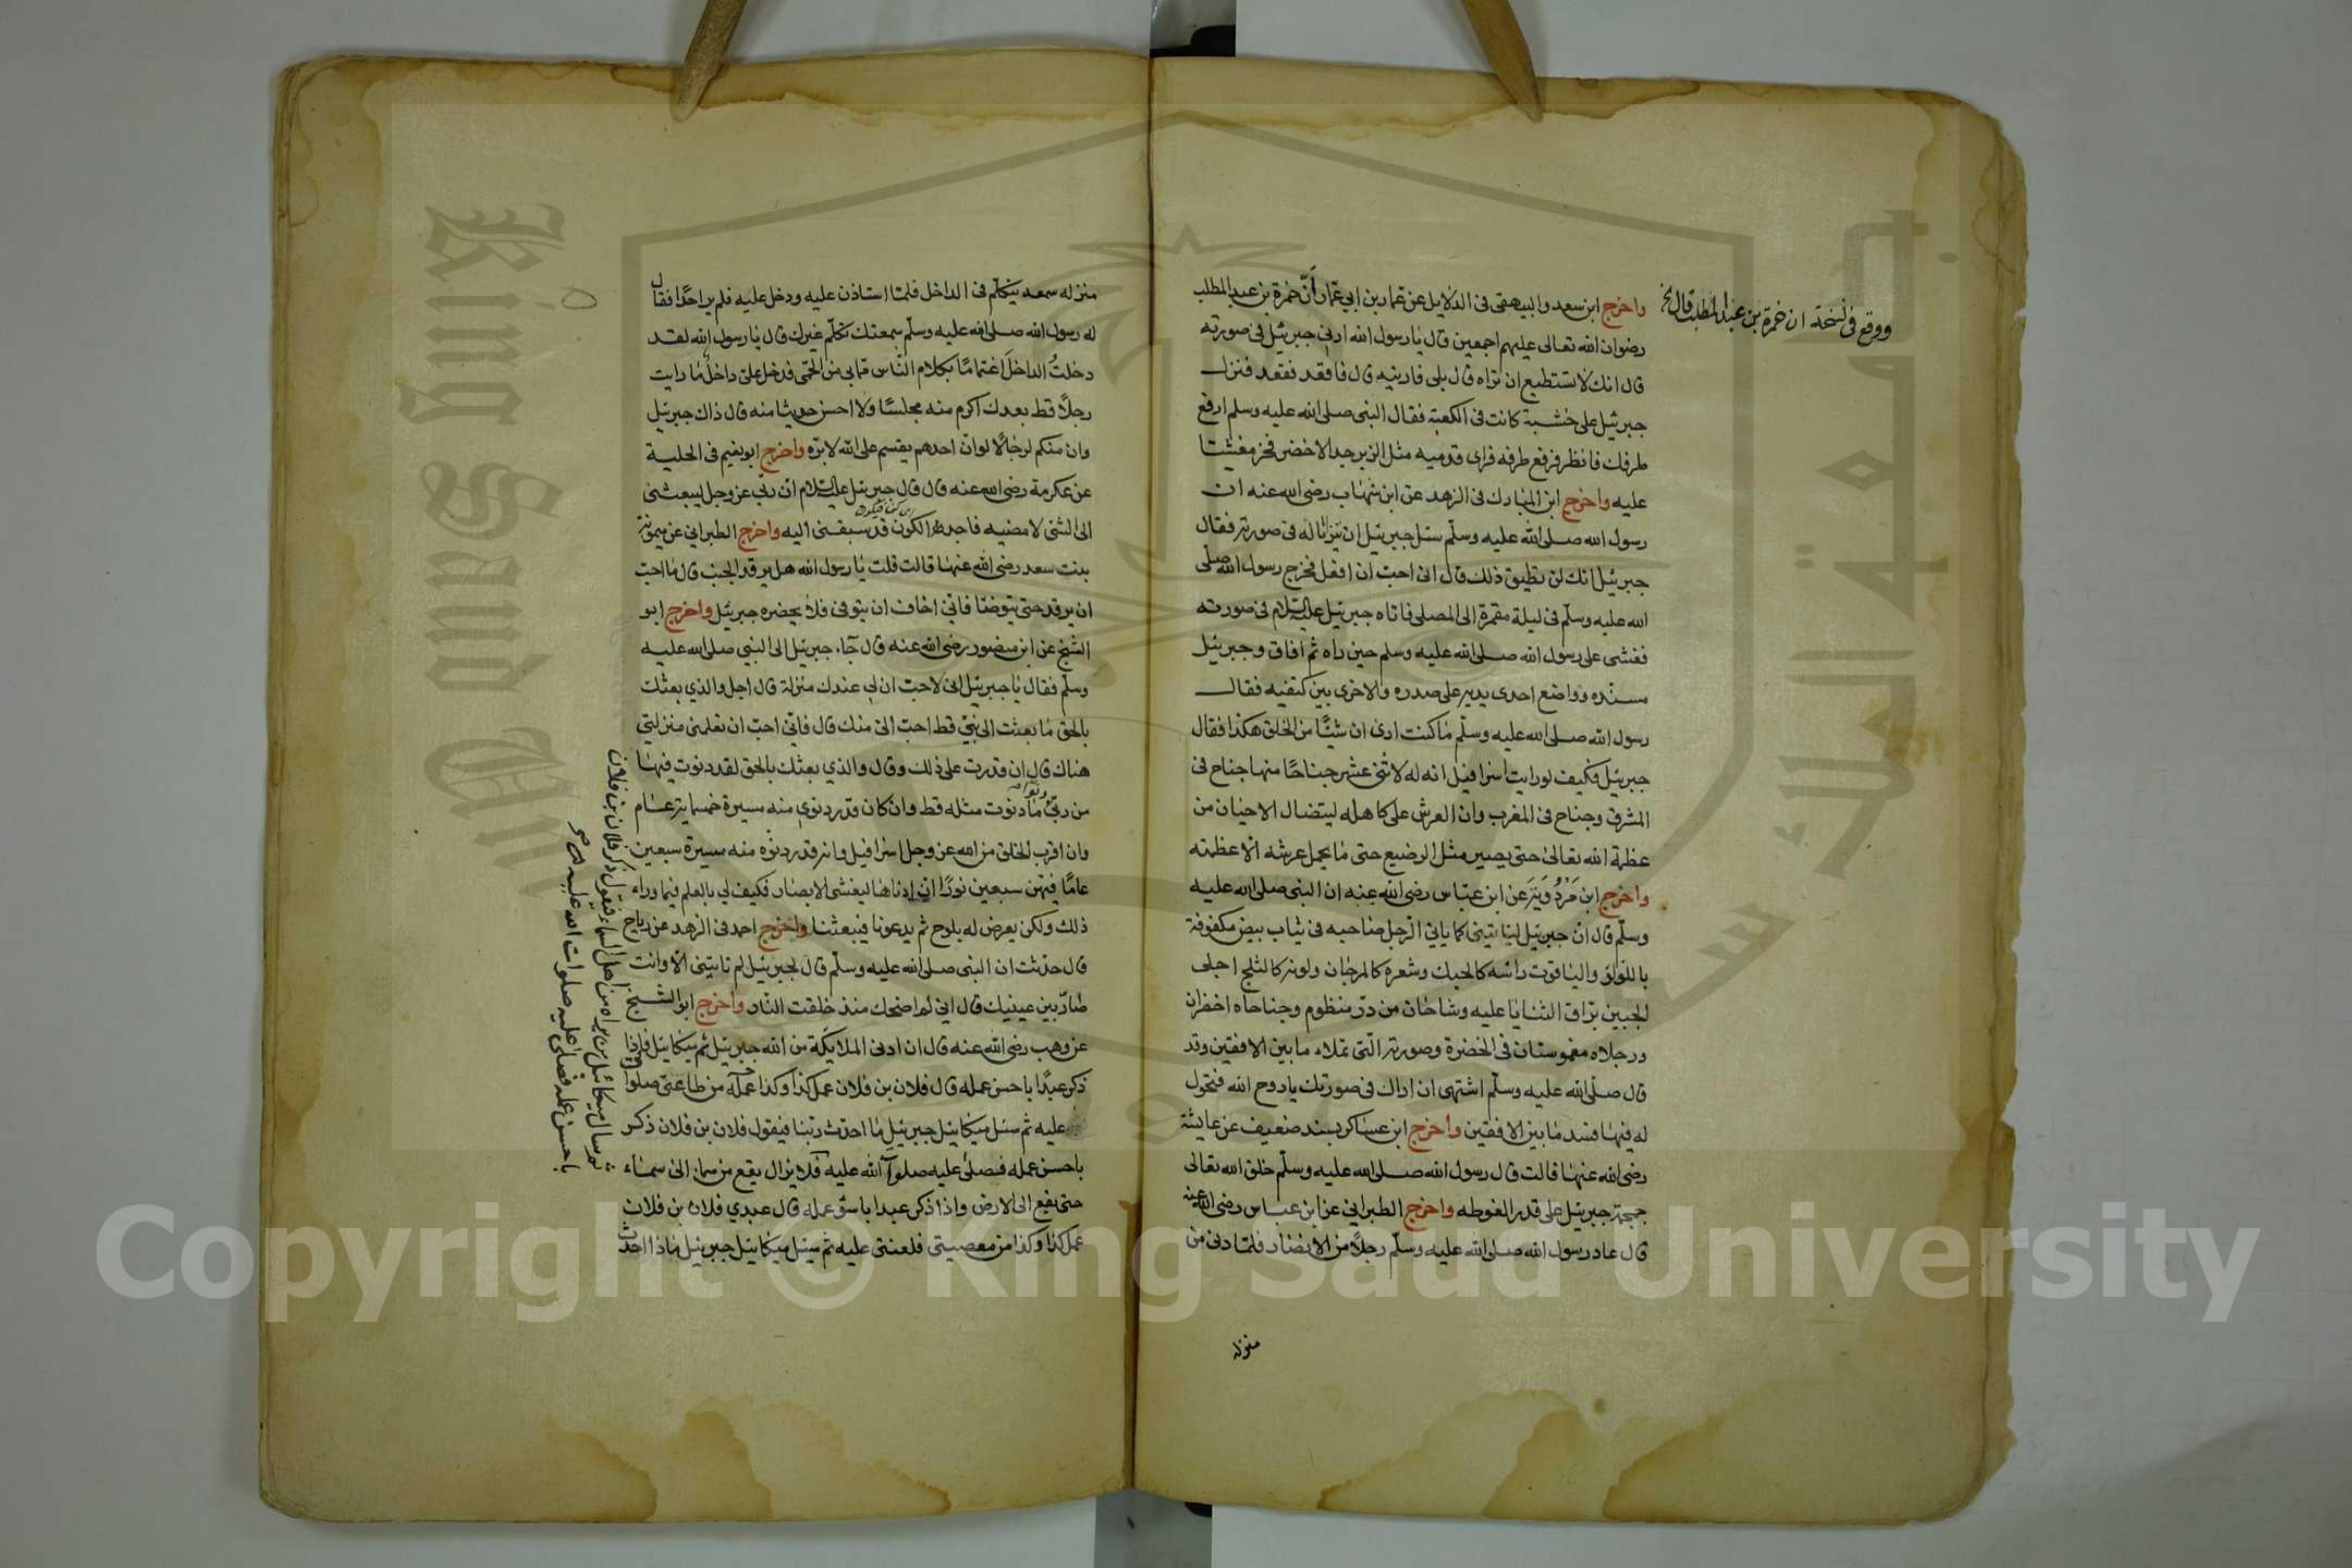 واخرج ابن سعد والبيهقى فى الدلايل عن عمار بن ابي عمار أنّ حمزة بن عبد المطلب
رضوان الله تعالى عليهم اجمعين قال يا رسول الله ارنى جبريئل فى صورته
قال انك لا تستطيع ان تراه قال بلى فارنيه قال فاقعد فقعد فنزل
جبريئل على خشبة كانت فى الكعبة فقال النبى صلى الله عليه وسلم ارفع
طرفك فانظر فرفع طرفه فراى قدميه مثل الزبرجد الاخضر فخر مغشيا
عليه واخرج ابن المبارك فى الزهد عن ابن شهاب رضى الله عنه ان
رسول الله صلى الله عليه وسلم سئل جبريئل ان يتراياله فى صورته فقال
جبريئل انك لن تطيق ذلك قال انى احبّ ان افعل فخرج رسول الله صلى
الله عليه وسلّم فى ليلة مقمرة الى المصلى فاتاه جبريئل عليه السلام فى صورته
فغشى على رسول الله صلى الله عليه وسلم حين راه ثم افاق وجبريئل
مسنده وواضع احدى يديه على صدره والاخرى بين كتفيه فقال
رسول الله صلى الله عليه وسلّم ما كنت ارى ان شيئًا من الخلق هكذا فقال
جبريئل فكيف لو رايت اسرافيل انه له لاثنى عشر جناحًا منها جناح فى
المشرق وجناح فى المغرب وان العرش على كاهله ليتضال الاحيان من
عظمة الله تعالى حتى يصير مثل الوضيع حتى ما يحمل عرشه الا عظمته
واخرج ابن مَرْدُوَيَه عن ابن عباس رضى الله عنه ان النبى صلى الله عليه
وسلّم قال انّ جبريئل ليأتينى كما ياتى الرّجل صاحبه فى ثياب بيض مكفوفة
باللّؤلؤ والياقوت راسه كالحبك وشعره كالمرجان ولونه كالثلج اجلى
الجبين برّاق الثنايا عليه وشاحان من درّ منظوم وجناحاه اخضران
ورجلاه مغموستان فى الخضرة وصورته الّتى تملاء ما بين الافقين وقد
قال صلّى الله عليه وسلّم اشتهى ان اراك فى صورتك يا روح الله فتحوّل
له فيها فسد ما بين الافقين واخرج ابن عساكر بسند ضعيف عن عايشة
رضى الله عنها قالت قال رسول الله صلى الله عليه وسلّم خلق الله تعالى
جمجمة جبريئل على قدر الغوطه واخرج الطبرانى عن ابن عباس رضى الله عنه
قال عاد رسول الله صلى الله عليه وسلّم رجلًا من الانصار فلمّا دنى من
منزله
ووقع فى نسخة ان حمزة بن عبد المطلب قال
منزله سمعه يتكلّم فى الداخل فلمّا استاذن عليه ودخل عليه فلم ير احدًا فقال
له رسول الله صلى الله عليه وسلّم سمعتك تكلّم غيرك قال يا رسول الله لقد
دخلتُ الداخل اغتمامًا بكلام النّاس ممّا بى من الحمّى فدخل علىّ داخل ما رايت
رجلًا قط بعدك اكرم منه مجلسًا ولا احسن حديثا منه قال ذاك جبريئل
وان منكم لرجالًا لو انّ احدهم يقسم على الله لابرّه واخرج ابو نعيم فى الحلية
عن عكرمة رضى الله عنه قال قال جبريئل عليه السلام انّ ربى عز وجل ليبعثنى
الى الشئ لامضيه فاجد الكون قد سبقنى اليه واخرج الطبرانى عن ميمونة
بنت سعد رضى الله عنها قالت قلت يا رسول الله هل يرقد الجنب قال ما احبّ
ان يرقد حتى يتوضّا فانّى اخاف ان يتوفى فلا يحضره جبريئل واخرج ابو
الشيخ عن ابن منصور رضى الله عنه قال جاء جبريئل الى النبى صلى الله عليه
وسلّم فقال يا جبريئل انى لاحبّ ان لى عندك منزلة قال اجل والذي بعثك
بالحق ما بعثت الى نبىّ قط احبّ الىّ منك قال فانّى احبّ ان تعلمنى منزلتى
هناك قال ان قدرت على ذلك وقال والذي بعثك بالحق لقد دنوت فيها
من ربّى دنوّا ما دنوت مثله قط وان كان قدر دنوى منه مسيرة خمسماية عام
وان اقرب الخلق من الله عز وجل اسرافيل وانه قدر دنوّه منه مسيرة سبعين
عامًا فيهن سبعين نورًا ان ادناها ليغشى الابصار فكيف لى بالعلم فيما وراء
ذلك ولكن يعرض له بلوح ثم يدعونا فيبعثنا واخرج احمد فى الزهد عن رباح
قال حدّثت ان النبى صلى الله عليه وسلّم قال لجبريئل لم تاتينى الّا وانت
صارّ بين عينيك قال انى لم اضحك منذ خلقت النار واخرج ابو الشيخ
عن وهب رضى الله عنه قال ان ادنى الملايكة من الله جبريئل ثم ميكايئل فاذا
ذكر عبدًا باحسن عمله قال فلان بن فلان عمل كذا وكذا عمله من طاعتى صلواتى
عليه ثم سئل ميكايئل جبريئل ما احدث ربنا فيقول فلان بن فلان ذكر
باحسن عمله فصلى عليه صلوات الله عليه فلا يزال يقع من سماء الى سماء
حتى يقع الى الارض واذا ذكر عبدا باسوّ عمله قال عبدي فلان بن فلان
عمل كذا وكذا من معصيتى فلعنتى عليه ثم سئل ميكايئل جبريئل ماذا احدث
ثم سال ميكائل من يراه من اهل السماء فيقول ذكر فلان بن فلان
باحسن عمله فصلى عليه صلوات الله عليه
King Saud Un
Copyright © King Saud University